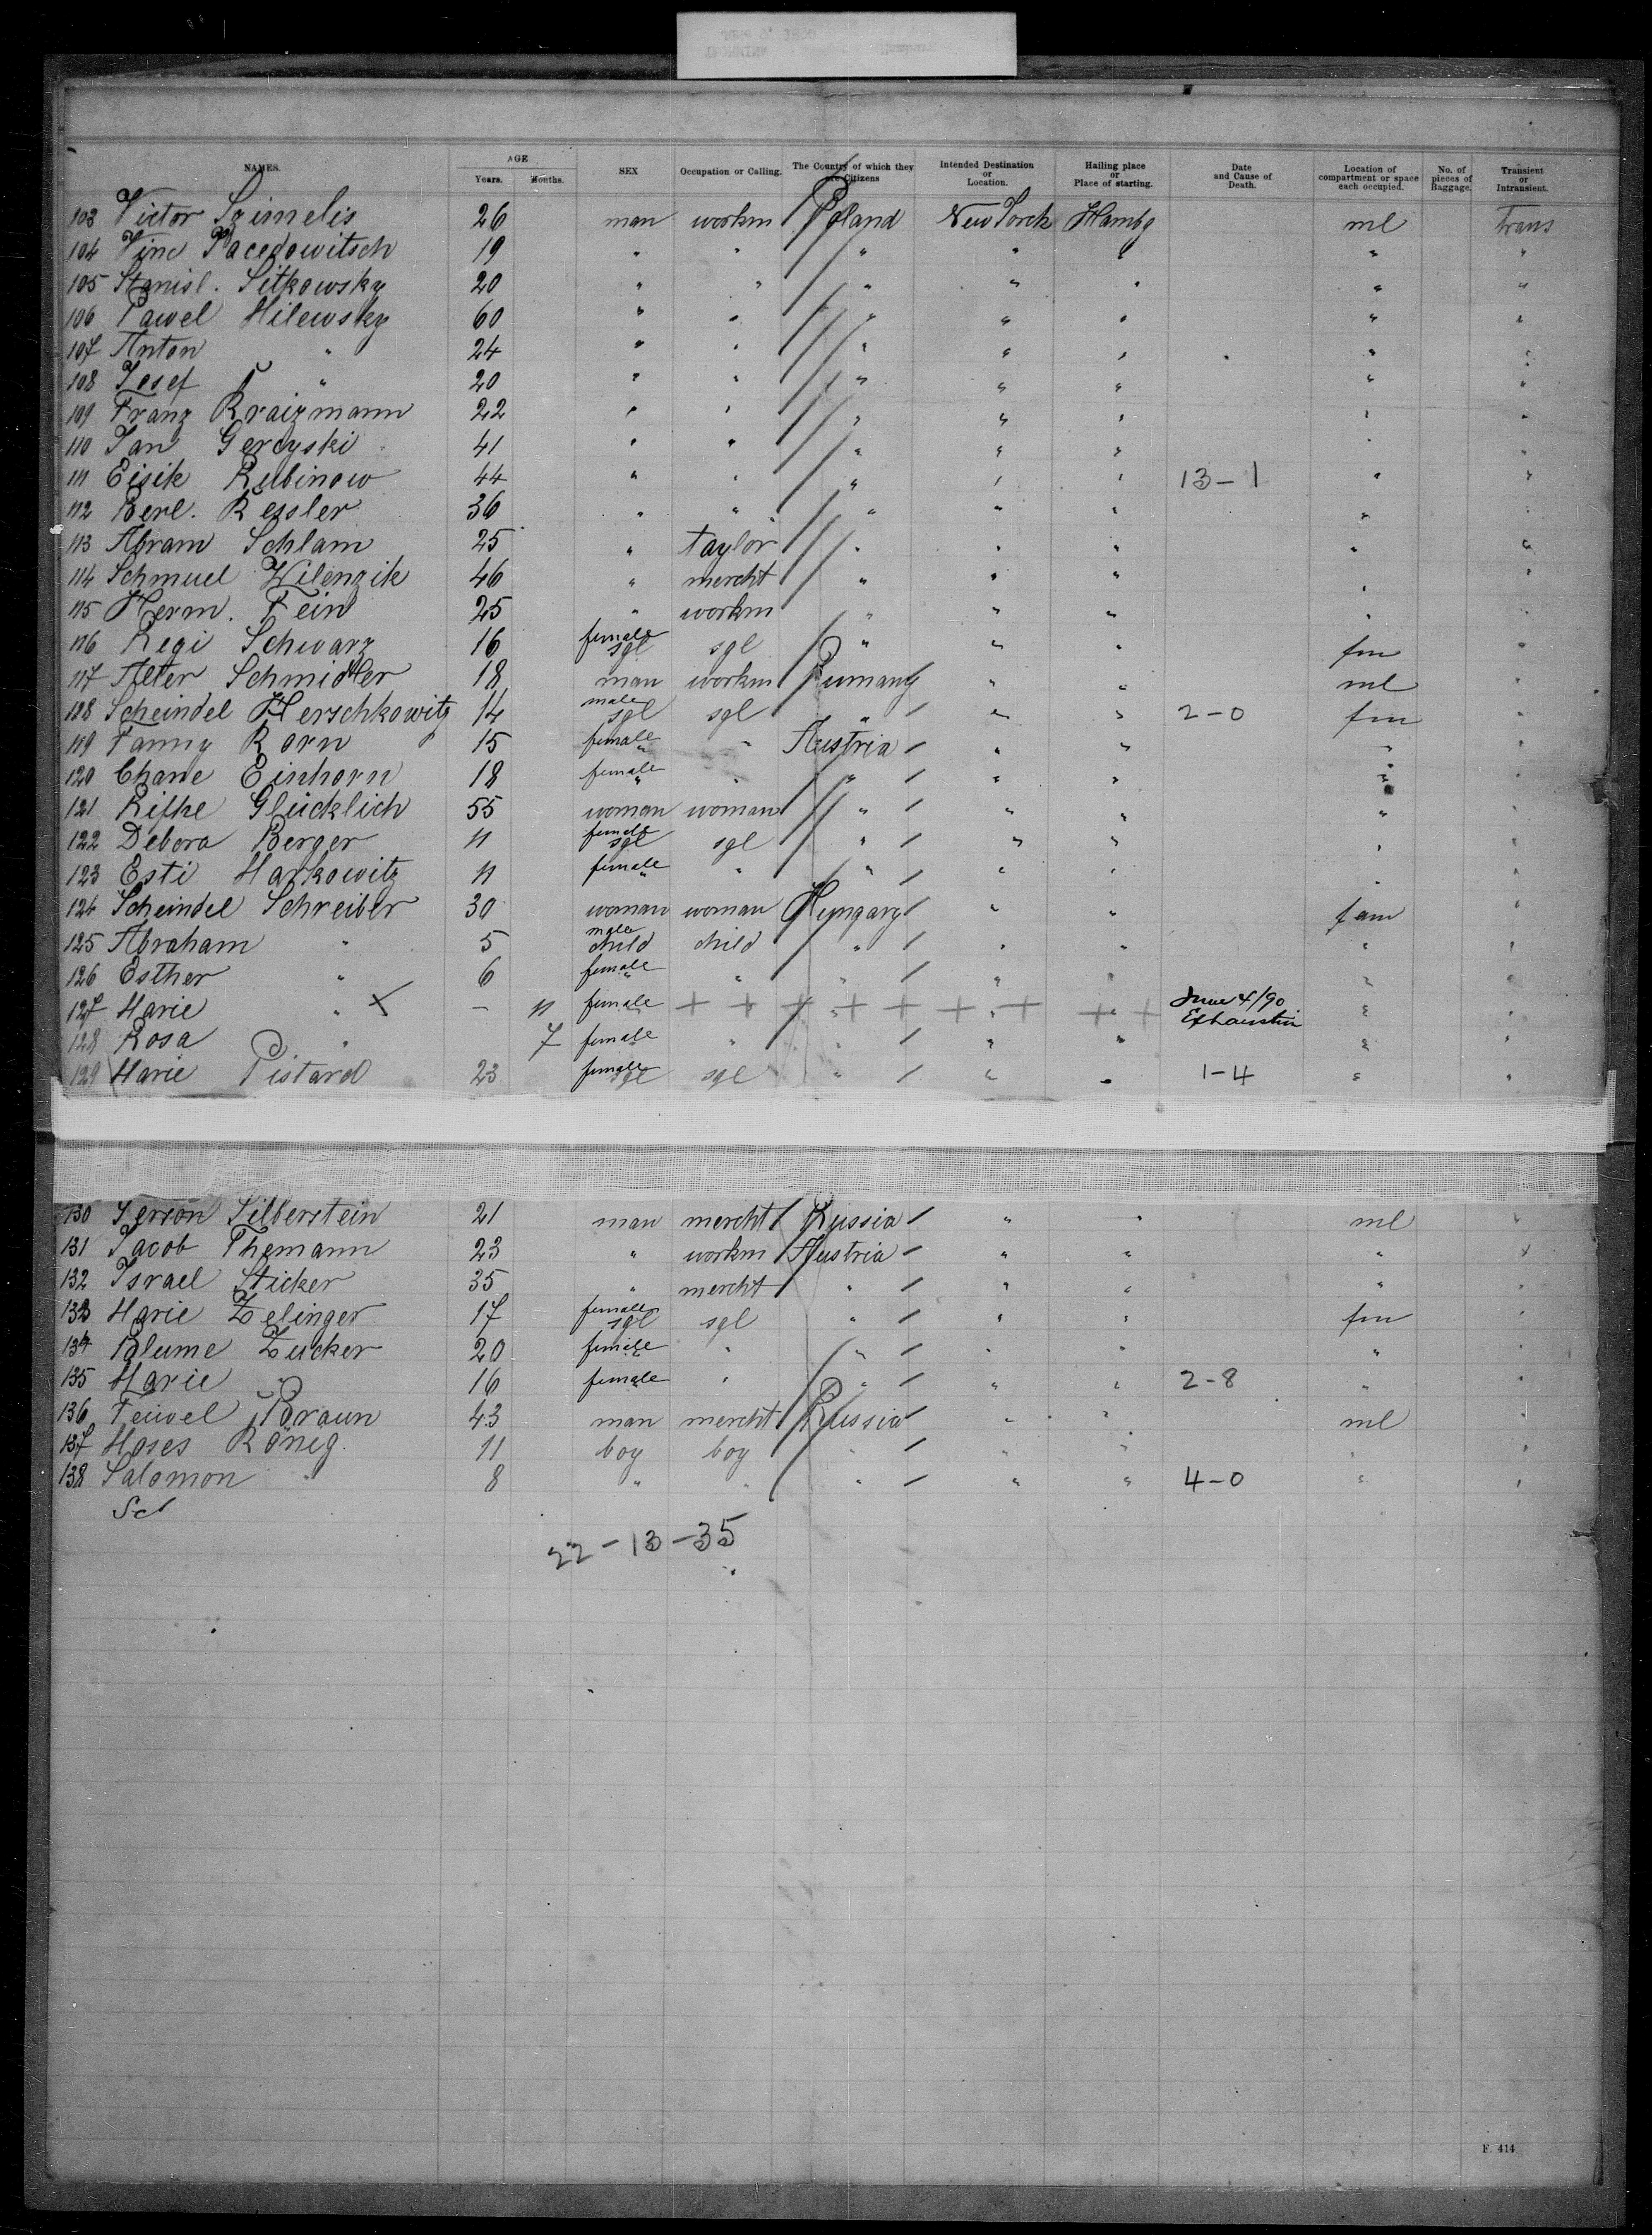 NAMES. AGE Years. Months. SEX Occupation or Calling. The Country of which they are Citizens Intended Destination or Location. Hailing place or Place of starting. Date and Cause of Death. Location of compartment or space each occupied. No. of pieces of Baggage. Transient or Intransient.
103 Victor Szimelis 26 man workm Poland New Yorck Hambg ml Trans
104 Vinc Pacedowitsch 19 " " " " " " "
105 Stanisl. Sitkowsky 20 " " " " " " "
106 Pawel Milewsky 60 " " " " " " "
107 Anton " 24 " " " " " " "
108 Josef " 20 " " " " " " "
109 Franz Kraizmann 22 " " " " " " "
110 Jan Gercyski 41 " " " " " " "
111 Eisik Rubinow 44 " " " " " 13-1 " "
112 Berl. Kessler 36 " " " " " " "
113 Abram Schlam 25 " taylor " " " " "
114 Schmuel Wilenzik 46 " mercht " " " " "
115 Herm. Fein 25 " workm " " " " "
116 Regi Schwarz 16 female sgl sgl " " " fm "
117 Alter Schmidler 18 man workm Rumany " " ml "
118 Scheindel Herschkowitz 14 male sgl sgl " " " 2-0 fm "
119 Fanny Korn 15 female " " Austria " " " "
120 Chane Einhorn 18 female " " " " " " "
121 Rifke Glücklich 55 woman woman " " " " "
122 Debora Berger 11 female sgl sgl " " " " "
123 Esti Markowitz 11 female " " " " " " "
124 Scheindel Schreiber 30 woman woman Hungary " " fam "
125 Abraham " 5 male child child " " " " "
126 Esther " 6 female " " " " " " "
127 Marie " - 11 female " " " " June 4/90 Exhaustin " "
128 Rosa " 7 female " " " " " "
129 Marie Pistard 23 female sgl sgl " " " 1-4 " "
130 Gerson Silberstein 21 man mercht Russia " " ml "
131 Jacob Themann 23 " workm Austria " " " "
132 Israel Sticker 35 " mercht " " " " "
133 Marie Zelinger 17 female sgl sgl " " " fm "
134 Blume Zucker 20 female " " " " " "
135 Marie " 16 female " " " " 2-8 " "
136 Feiwel Braun 43 man mercht Russia " " ml "
137 Moses König 11 boy boy " " " " "
138 Salomon " 8 " " " " " 4-0 " "
22-13-35
F. 414